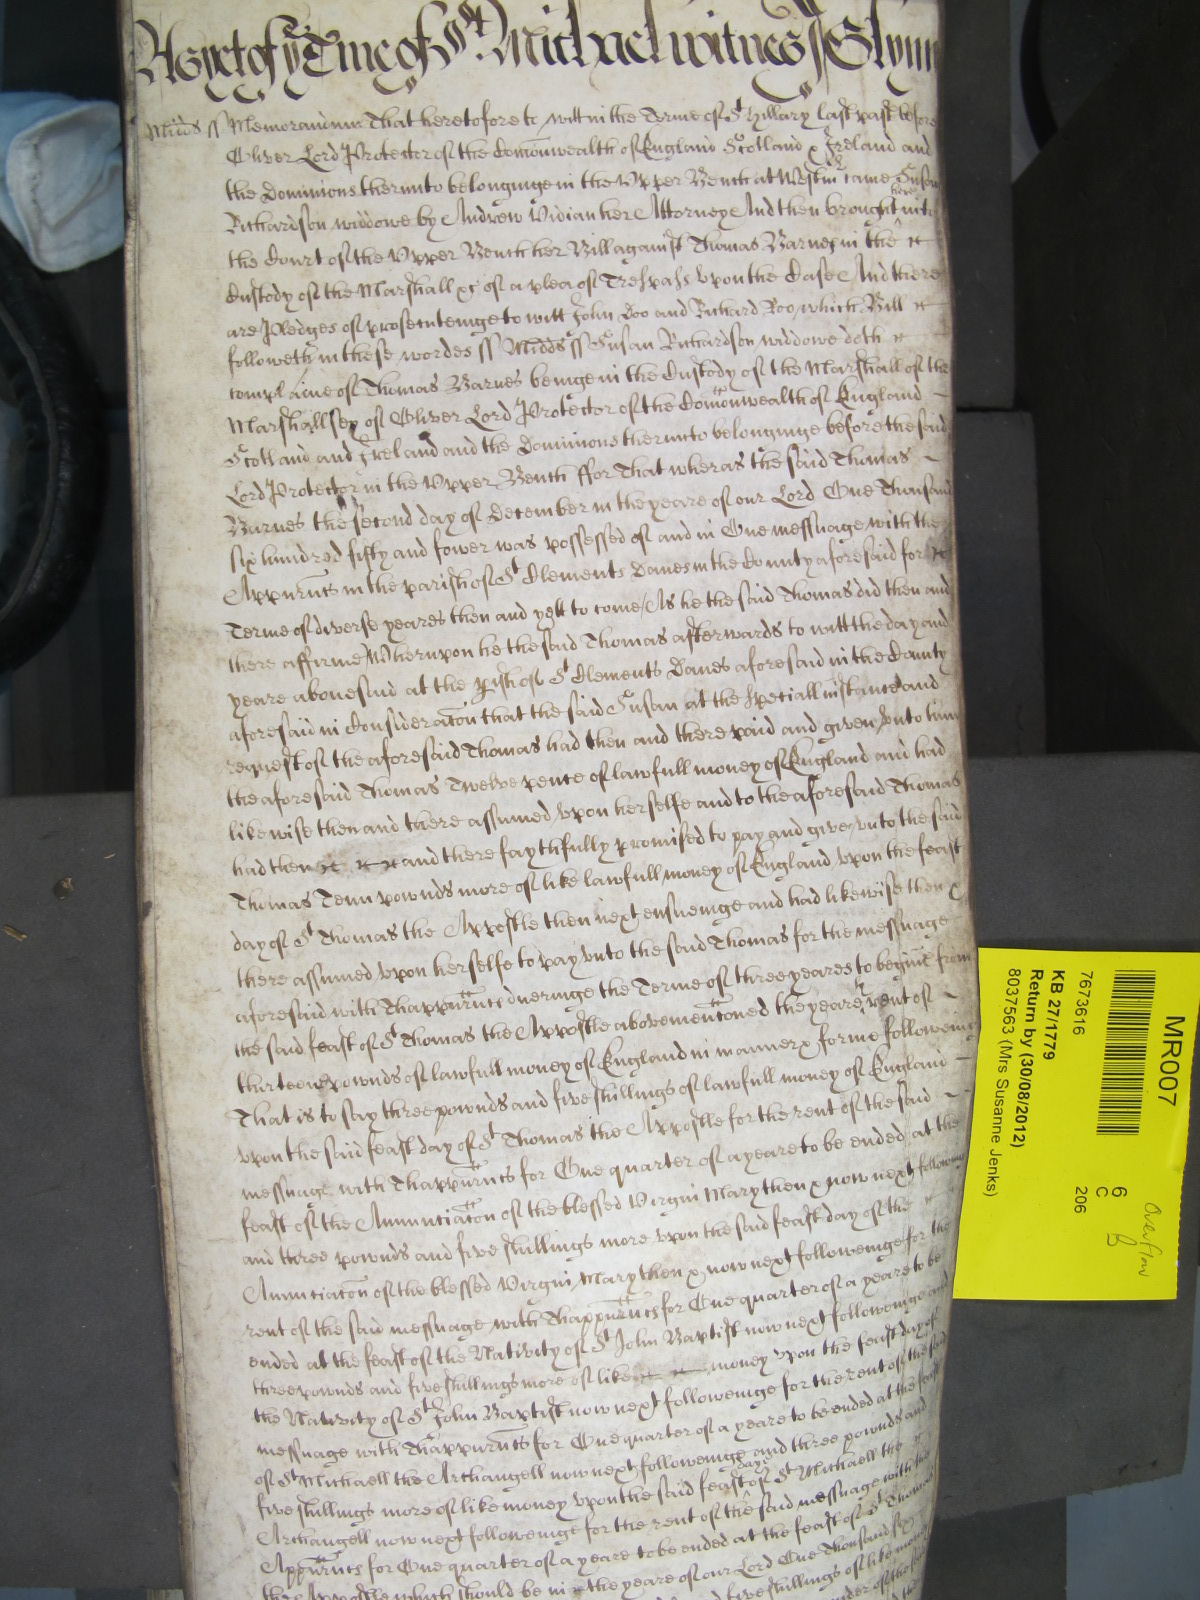 As yet of ye Terme of St. Michael witnes J Glynn
Midds ss Memorandum That heretofore to witt in the Terme of St Hillary last past before
Oliver Lord Protector of the Comonwealth of England Scotland & Ireland and
the Dominions therunto belonginge in the Upper Bench at Westm came Susan
Richardson widdowe by Andrew Vidian her Attorney And then brought here into
the Court of the Upper Bench her Bill against Thomas Barnes in the
Custody of the Marshall &c of a plea of Trespass upon the Case And there
are Pledges of prosecuteinge to witt John Doo and Richard Roo, which Bill
followeth in these wordes ss Midds ss Susan Richardson widdowe doth
complaine of Thomas Barnes beinge in the Custody of the Marshall of the
Marshallsey of Oliver Lord Protector of the Comonwealth of England
Scotland and Ireland and the Dominions therunto belonginge before the said
Lord Protector in the Upper Bench ffor That wheras the said Thomas
Barnes the second day of December in the yeare of our Lord One Thousand
six hundred fifty and fower was possessed of and in One messuage with the
Appurtncs in the parish of St Clements Danes in the County aforesaid for
Terme of diverse yeares then and yett to come, As he the said Thomas did then and
there affirme, Wherupon he the said Thomas afterwards to witt the day and
yeare abovesaid at the pish of St Clements Danes aforesaid in the County
aforesaid in Consideracon that the said Susan at the speciall instance and
request of the aforesaid Thomas had then and there paid and given unto him
the aforesaid Thomas Twelve pence of lawfull money of England and had
likewise then and there assumed upon herselfe and to the aforesaid Thomas
had then and there faythfully promised to pay and give unto the said
Thomas Tenn pownds more of like lawfull money of England upon the feast
day of St Thomas the Appostle then next ensueinge and had likewise then &
there assumed upon herselfe to pay unto the said Thomas for the messuage
aforesaid with Thappurtncs dueringe the Terme of three yeares to begine from
the said feast of St Thomas the Appostle abovementioned the yearely rent of
thirteene pownds of lawfull money of England in manner & forme followeing
That is to say three pownds and five shillings of lawfull money of England
upon the said feast day of St Thomas the Appostle for the rent of the said
messuage with Thappurtncs for One quarter of a yeare to be ended at the
feast of the Annunciacon of the blessed Virgin Mary then & now next following
and three pownds and five shillings more upon the said feast day of the
Annunciacon of the blessed Virgin Mary then & now next followeinge for the
rent of the said messuage with Thappurtncs for One quarter of a yeare to be
ended at the feast of the Nativity of St John Baptist now next followeinge and
three pownds and five shillings more of like money upon the feast day of
the Nativity of St John Baptist now next followeinge for the rent of the said
messuage with Thappurtncs for One quarter of a yeare to be ended at the feast
of St Michaell the Archangell now next followeinge and three pownds and
five shillings more of like money upon the said feast day of St Michaell the
Archangell now next followeinge for the rent of the said messuage with the
Appurtncs for One quarter of a yeare to be ended at the feast of St Thomas
the Appostle which should be in the yeare of our Lord One Thousand six
five shillings of like money
MR007
7673616
6
C
206
KB 27/1779
Return by (30/08/2012)
8037563 (Mrs Susanne Jenks)
Overflow